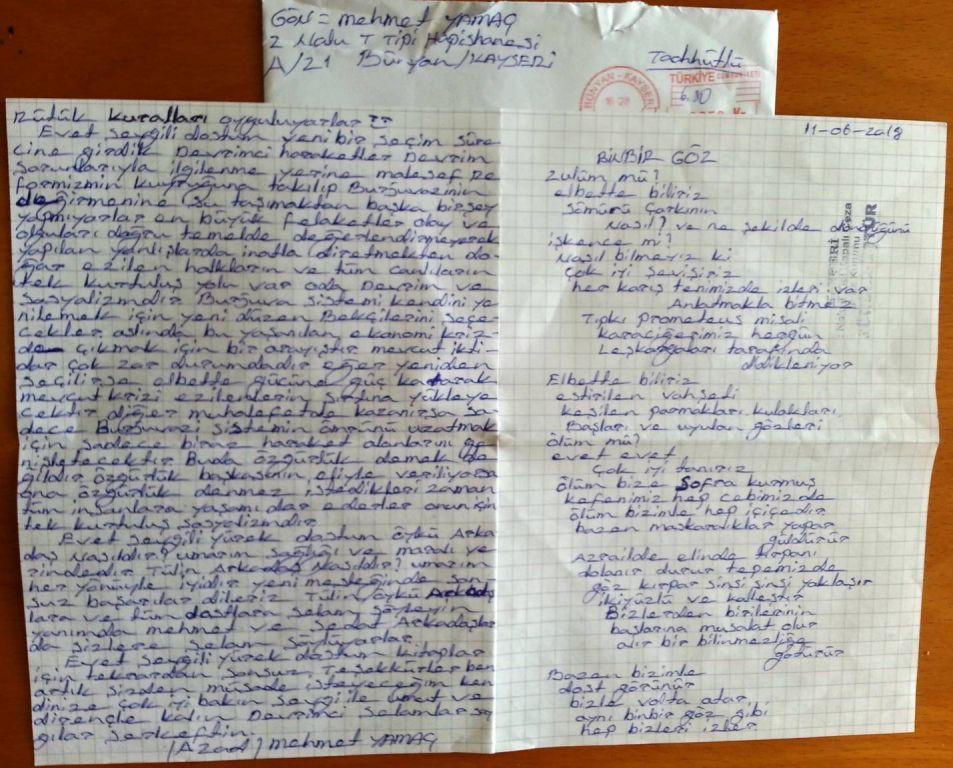 GÖN = mehmet YAMAÇ
2 Nolu T Tipi Hapishanesi
A/21 Bünyan/KAYSERİ
Taahhütlü
BÜNYAN - KAYSERİ
TÜRKİYE
6.80
kuralları uyguluyorlar
Evet sevgili dostum yeni bir seçim süre
cine girdik Devrimci hareketler Devrim
sorunlarıyla ilgilenme yerine malesef re
formizmin kuyruğuna takılıp Burjuvazinin
değirmenine su taşımaktan başka birşey
yapmıyorlar en büyük felaketler olay ve
olguları doğru temelde değerlendirmeyerek
yapılan yanlışlarda inatla diretmekten do-
ğar ezilen halkların ve tüm canlıların
tek kurtuluş yolu var oda Devrim ve
sosyalizmdir Burjuva sistemi kendini ye
nilemek için yeni düzen Bekçilerini seçe
cekler aslında bu yaşanılan ekonomi kriz-
de çıkmak için bir arayıştır mevcut ikti-
dar çok zor durumdadır eğer yeniden
seçilirse elbette gücüne güç katarak
mevcut krizi ezilenlerin sırtına yükleye
cektir diğer muhalefetde kazanırsa sa-
dece Burjuvazi sistemin ömrünü uzatmak
için sadece biraz hareket alanlarını ge
nişletecektir Buda özgürlük demek de
ğildir özgürlük başkasının eliyle veriliyorsa
ona özgürlük denmez istedikleri zaman
tüm insanlara yaşamı dar ederler onun için
tek kurtuluş sosyalizmdir
Evet sevgili yürek dostum öykü Arka
daş Nasıldır? umarım sağlığı ve moralı ye
rindedir Tülin Arkadaş Nasıldır? umarım
her yönüyle iyidir yeni mesleğinde son-
suz başarılar dileriz Tülin, öykü Arkadaş
lara ve tüm dostlara selam söyleyin
yanımda mehmet ve Sedat Arkadaşlar
da sizlere selam söylüyorlar
Evet sevgili yürek dostum kitaplar
için tekrardan sonsuz Teşekkürler ben
artık sizden müsade isteyeceğim ken
dinize çok iyi bakın sevgi ile umut ve
dirençle kalın Devrimci selamlar say
gılar serkeftin.
(Azad) mehmet YAMAÇ
11-06-2018
BİNBİR GÖZ
zulüm mü?
elbette biliriz
sömürü çarkının
Nasıl? ve ne şekilde döndüğünü
işkence mi?
Nasıl bilmeyiz ki
çok iyi sevişiriz
her karış tenimizde izleri var
Anlatmakla bitmez
Tıpkı prometeus misali
karaciğerimiz hergün
Leşkargaları tarafında
didikleniyor
Elbette biliriz
estirilen vahşeti
kesilen parmakları, kulakları,
Başları ve uyulan gözleri
ölüm mü?
evet evet
çok iyi tanırız
ölüm bize Sofra kurmuş
kefenimiz hep cebimizde
ölüm bizimle hep içiçedir
bazen maskaralıklar yapar
güldürür
Azrailde elinde tırpanı
dolanır durur tepemizde
göz kırpar sinsi sinsi yaklaşır
ikiyüzlü ve kalleştir
Bizlerden birilerinin
başlarına musallat olur
alır bir bilinmezliğe
götürür
Bazen bizimle
dost görünür
bizle volta atar,
aynı binbir göz gibi
hep bizleri izler